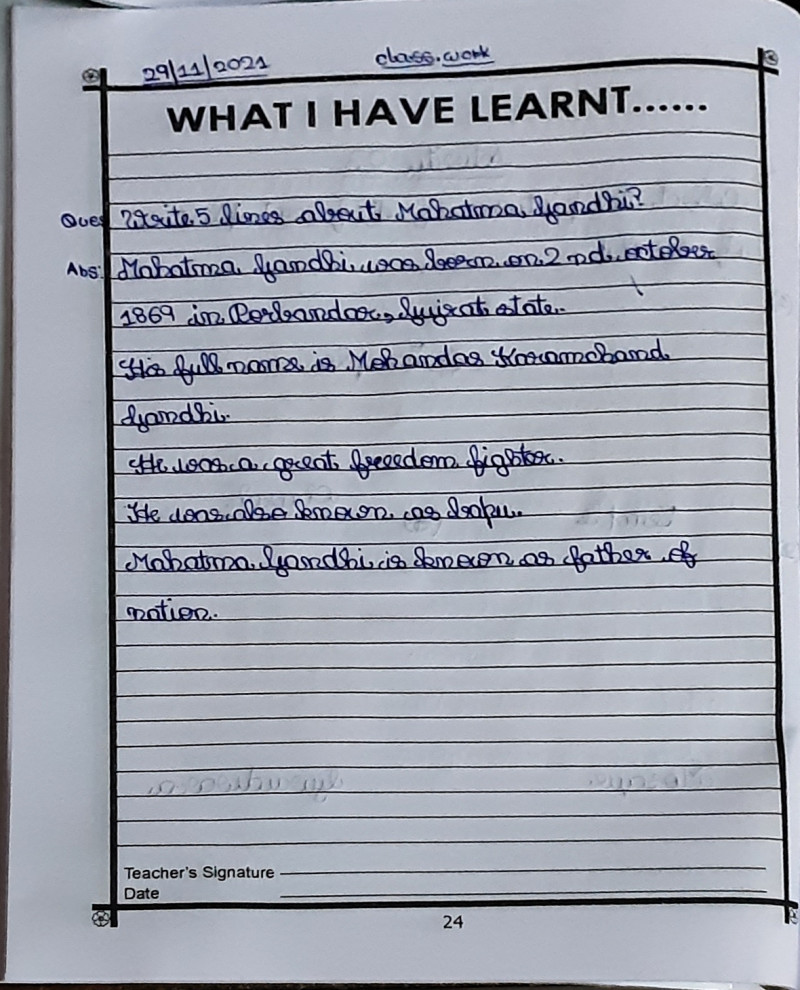 29/11/2021 class.work
WHAT I HAVE LEARNT......
Ques Write 5 lines about Mahatma Gandhi?
Abs: Mahatma Gandhi was born on 2 nd october
1869 in Porbandar, Gujrat state.
His full name is Mohandas Karamchand
Gandhi.
He was a great freedom fighter.
He was also known as bapu.
Mahatma Gandhi is known as father of
nation.
Teacher's Signature
Date
24